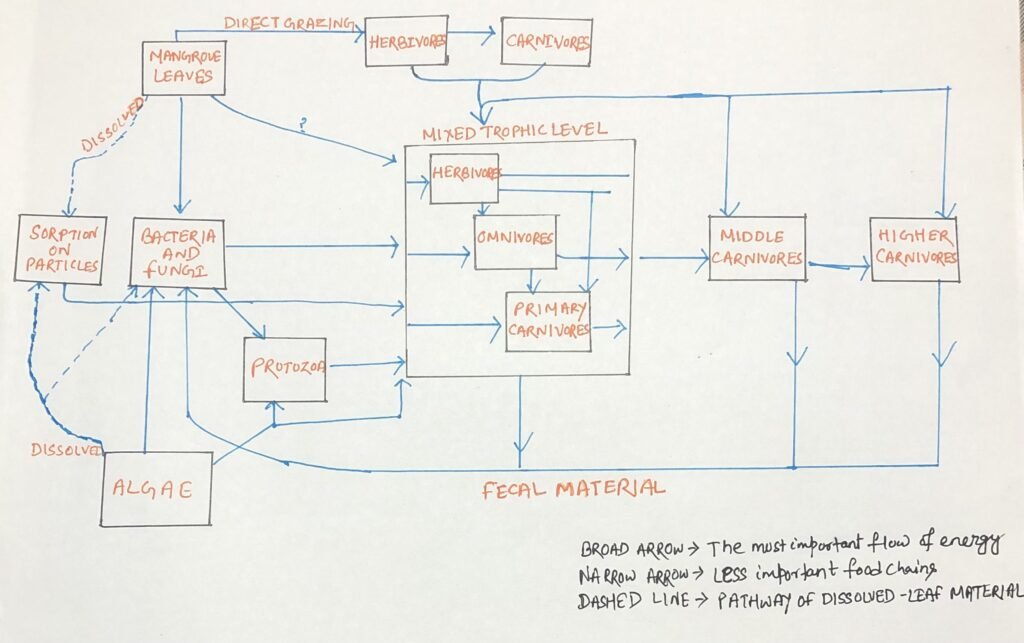 DIRECT GRAZING
HERBIVORES
CARNIVORES
MANGROVE
LEAVES
DISSOLVED
?
MIXED TROPHIC LEVEL
HERBIVORES
SORPTION
ON
PARTICLES
BACTERIA
AND
FUNGI
OMNIVORES
MIDDLE
CARNIVORES
HIGHER
CARNIVORES
PRIMARY
CARNIVORES
PROTOZOA
DISSOLVED
ALGAE
FECAL MATERIAL
BROAD ARROW → The most important flow of energy
NARROW ARROW → Less important food chains
DASHED LINE → PATHWAY OF DISSOLVED-LEAF MATERIAL